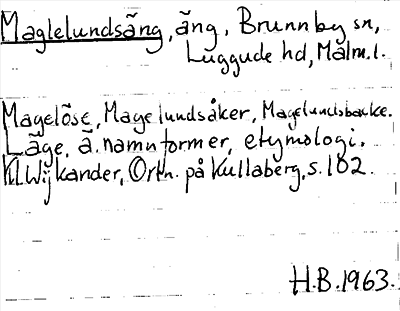 Maglelundsäng, äng, Brunnby sn,
Luggude hd, Malm.l.
Magelöse, Magelundsåker, Magelundsbacke.
Läge, ä. namnformer, etymologi.
Kl.Wijkander, Ortn. på Kullaberg, s. 102.
H.B. 1963.